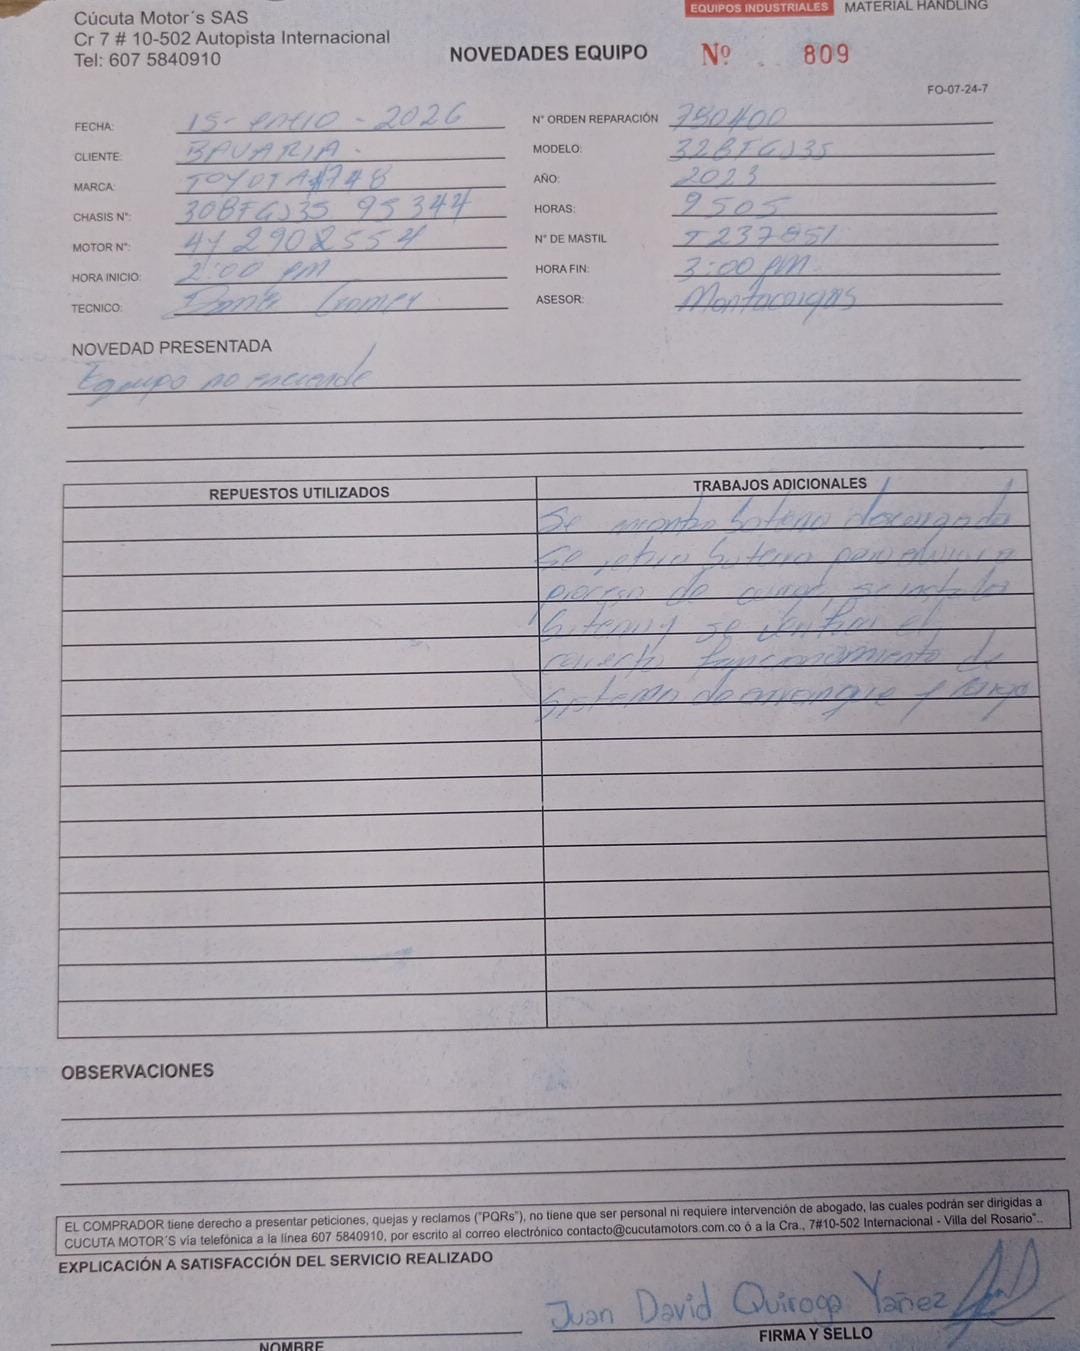 Cúcuta Motor´s SAS
Cr 7 # 10-502 Autopista Internacional
Tel: 607 5840910
EQUIPOS INDUSTRIALES MATERIAL HANDLING
NOVEDADES EQUIPO Nº 809
FO-07-24-7
FECHA: 15-enero-2026 N° ORDEN REPARACIÓN 780400
CLIENTE: BAVARIA. MODELO: 32BFGJ35
MARCA: TOYOTA #748 AÑO: 2023
CHASIS N°: 30BFGJ35 95344 HORAS: 9505
MOTOR N°: 4Y 2902554 N° DE MASTIL T237851
HORA INICIO: 2:00 PM HORA FIN: 3:00 PM
TECNICO: ASESOR: Montacargas
NOVEDAD PRESENTADA
Equipo no enciende
REPUESTOS UTILIZADOS TRABAJOS ADICIONALES
Se bateria descargada
Se retira bateria para
proceso de carga, se instala
bateria y se verifica el
correcto funcionamiento de
sistema de arranque y carga
OBSERVACIONES
EL COMPRADOR tiene derecho a presentar peticiones, quejas y reclamos ("PQRs"), no tiene que ser personal ni requiere intervención de abogado, las cuales podrán ser dirigidas a
CUCUTA MOTOR´S vía telefónica a la línea 607 5840910, por escrito al correo electrónico contacto@cucutamotors.com.co ó a la Cra., 7#10-502 Internacional - Villa del Rosario"..
EXPLICACIÓN A SATISFACCIÓN DEL SERVICIO REALIZADO
Juan David Quiroga Yañez
NOMBRE FIRMA Y SELLO